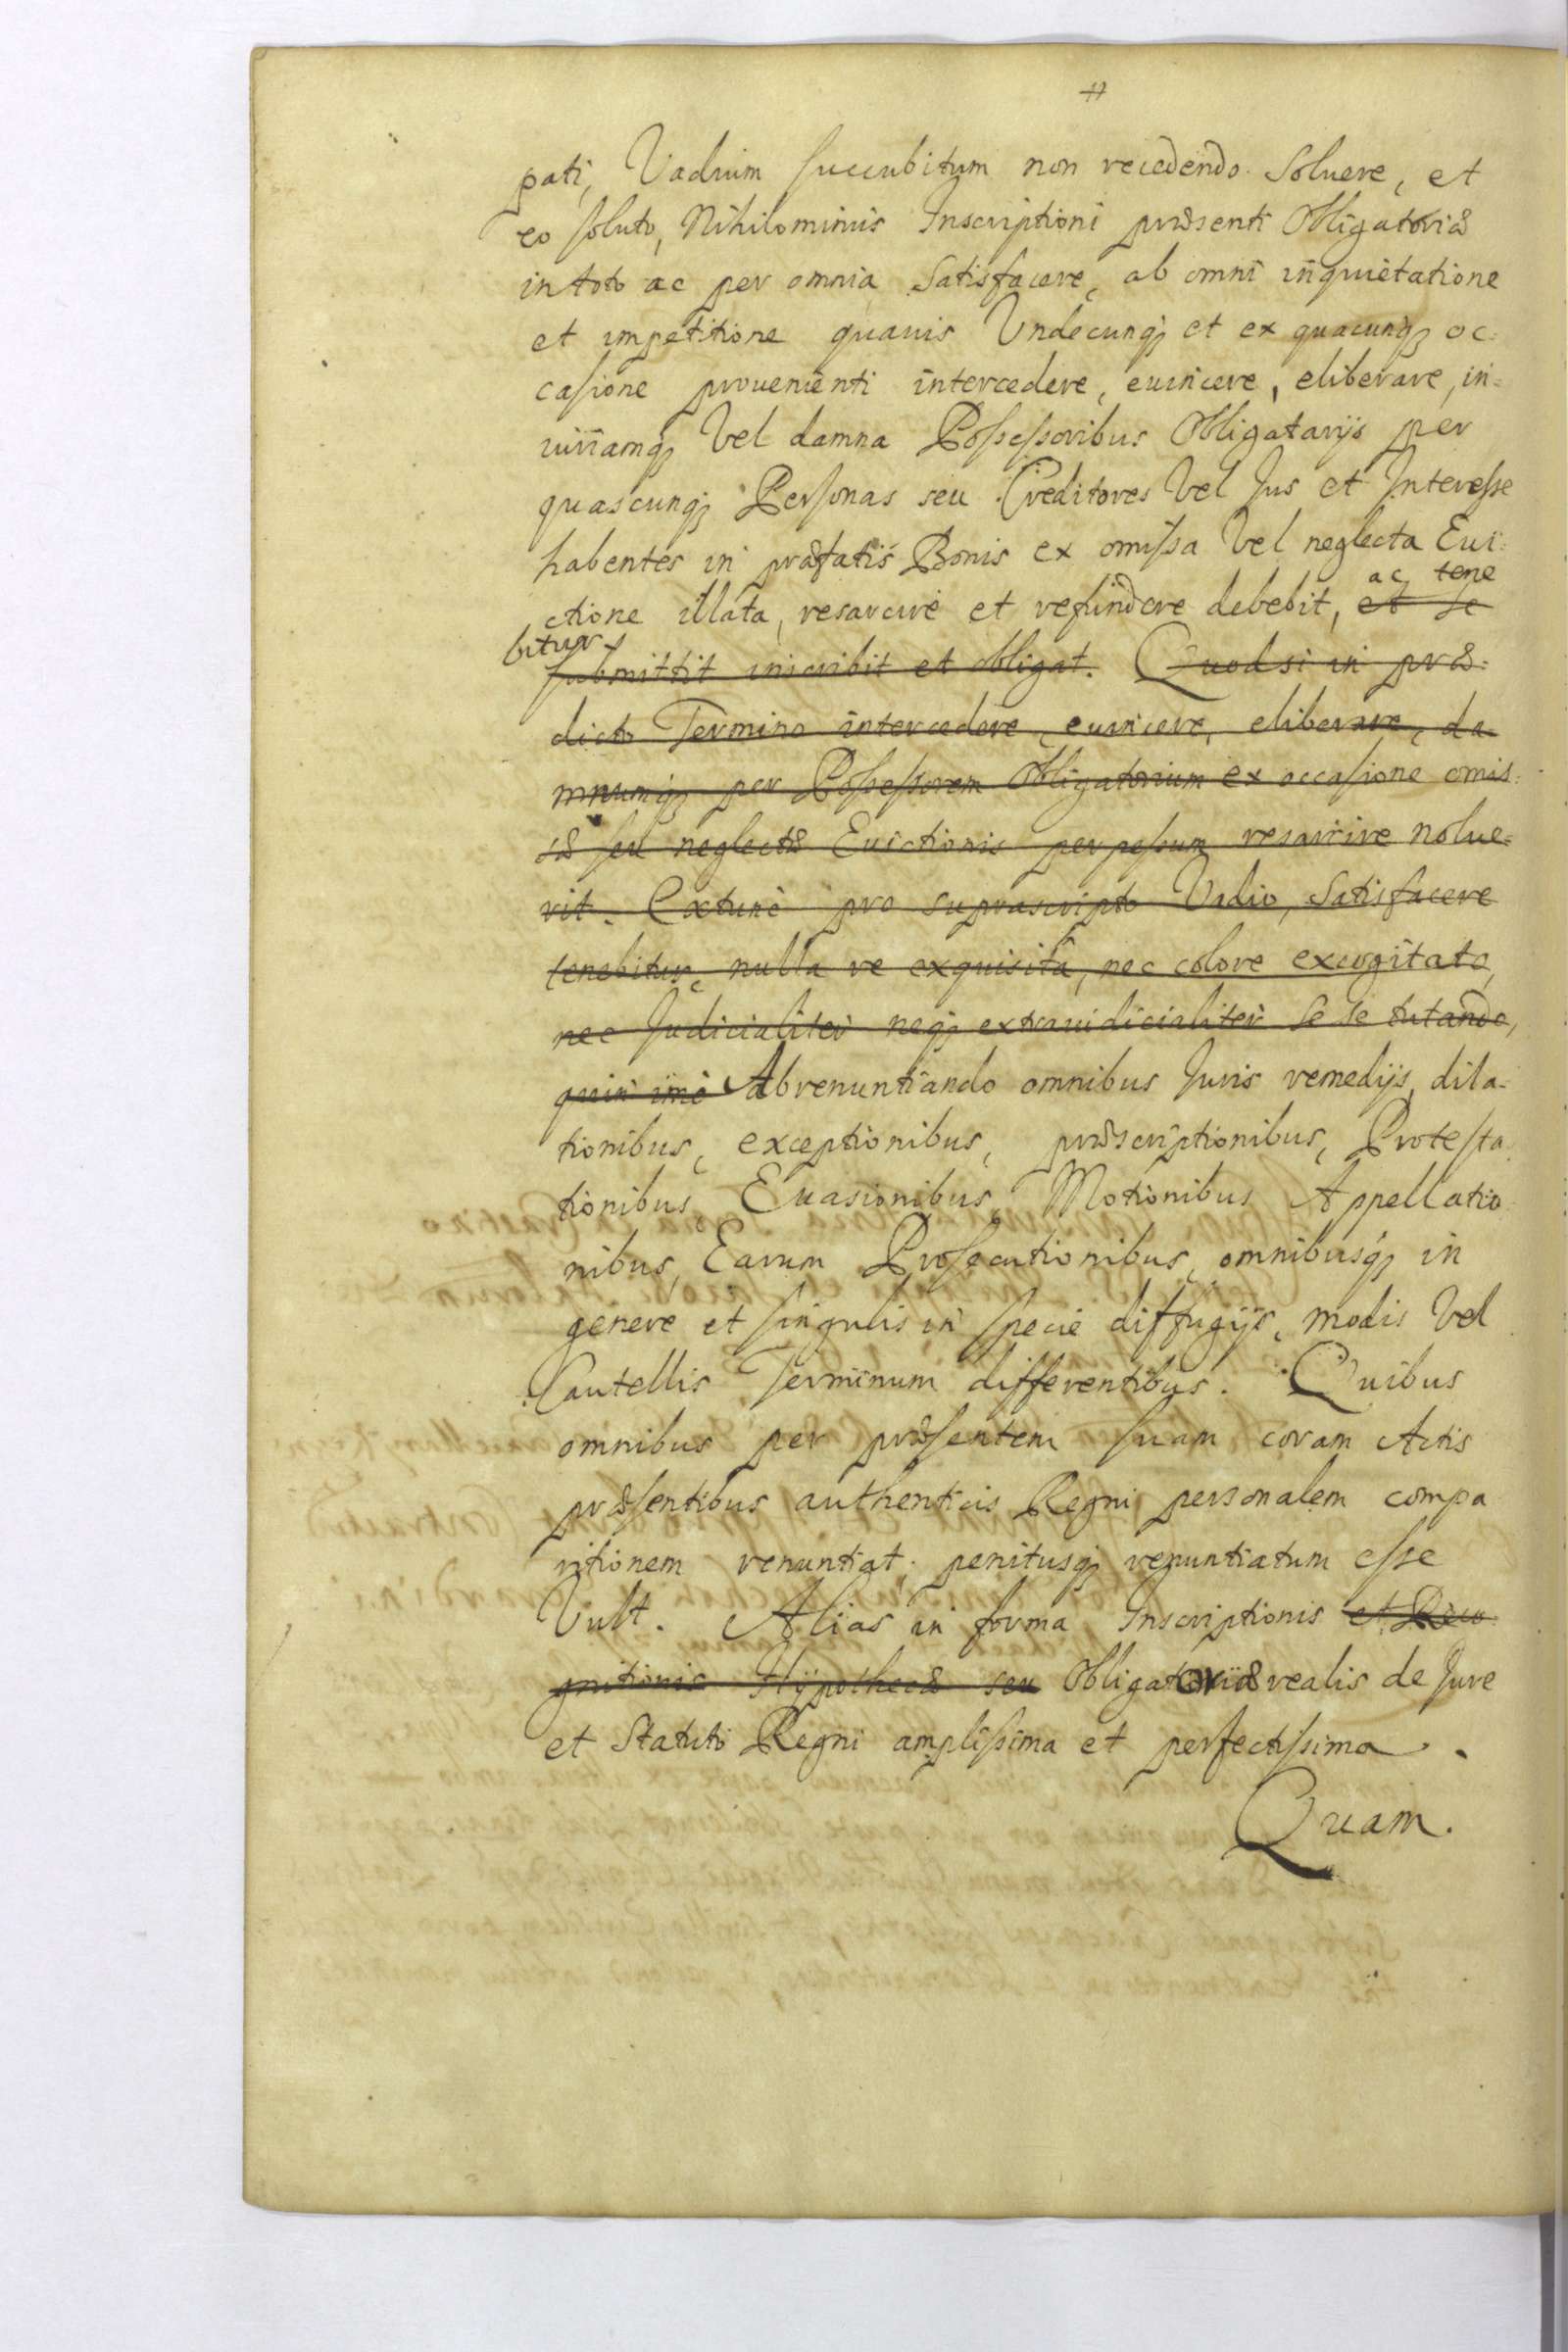 #
pati, Vadium succubitum non recedendo soluere, et
eo soluto, Nihilominus Inscriptioni præsenti Obligatoriæ
in toto ac per omnia Satisfacere, ab omni inquietatione
et impetitione quauis Vndecunq₃ et ex quacunq₃ oc:
casione prouenienti intercedere, euincere, eliberare, in=
iuriamq₃ Vel damna Possessoribus Obligatarijs per
quascunq₃ Personas seu Creditores Vel Jus et Interesse
habentes in præfatis Bonis ex omissa Vel neglecta Eui:
ctione illata, resarcire et refundere debebit, et se ac tene
bitur submittit inscribit et obligat. Quod si in præ:
dicto Termino intercedere, euincere, eliberare, da-
mnumq₃ per Possessorem Obligatorium ex occasione omis:
sæ seu neglectæ Euictionis perpessum resarcire nolue=
rit. Extunc pro suprascripto Vadio, Satisfacere
tenebitur, nulla re exquisita, nec colore excogitato,
nec Judicialiter neq₃ extraiudicialiter se se tutando,
quin imo Abrenuntiando omnibus Juris remedijs, dila-
tionibus, exceptionibus, præscriptionibus, Protesta
tionibus Euasionibus, Motionibus Appellatio
nibus, Earum Prosecutionibus, omnibusq₃ in
genere et singulis in specie diffugijs, modis Vel
Cautellis Terminum differentibus. Quibus
omnibus per præsentem suam coram Actis
præsentibus authenticis Regni personalem compa
ritionem renuntiat, penitusq₃ renuntiatum esse
Vult. Alias in forma Inscriptionis et Reco
gnitionis Hypothecæ seu Obligatoriæ realis de Jure
et Statuto Regni amplissima et perfectissima.
Quam.